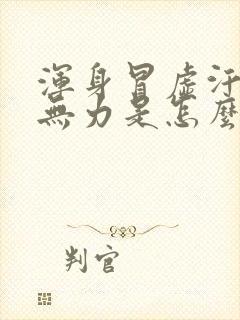 渾身冒虛汗
無力是怎麼
判官